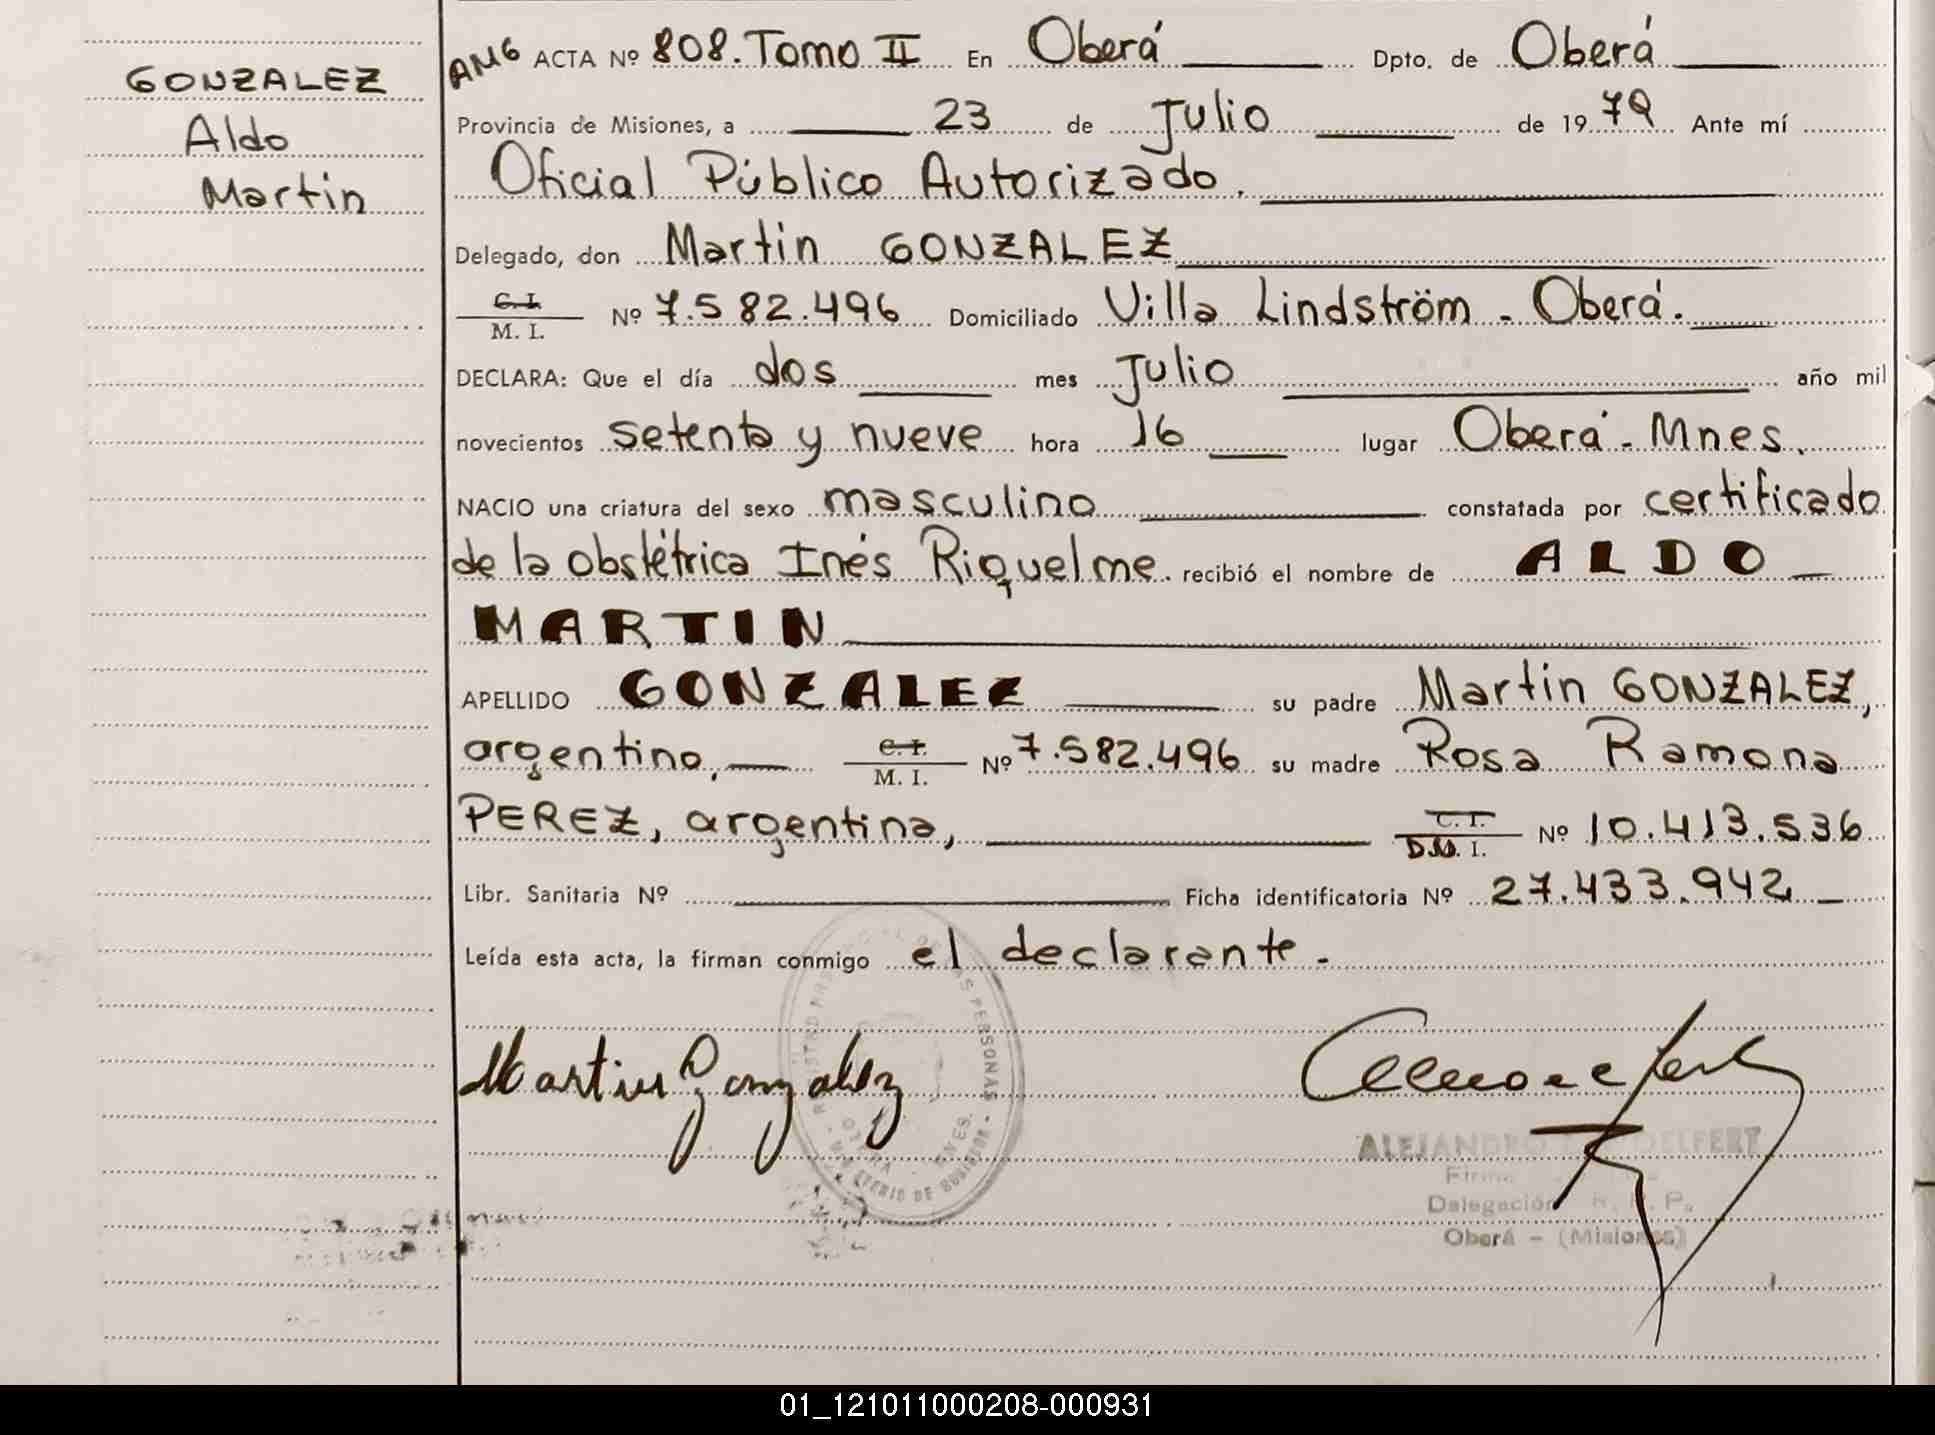 GONZALEZ
Aldo
Martin
AMG ACTA Nº 808. Tomo II En Oberá Dpto. de Oberá
Provincia de Misiones, a 23 de Julio de 1979 Ante mí
Oficial Público Autorizado.
Delegado, don Martin GONZALEZ
C. I.
M. I. Nº 7.582.496 Domiciliado Villa Lindström - Oberá.
DECLARA: Que el día dos mes Julio año mil
novecientos setenta y nueve hora 16 lugar Oberá - Mnes.
NACIO una criatura del sexo masculino constatada por certificado
de la obstétrica Inés Riquelme. recibió el nombre de ALDO
MARTIN
APELLIDO GONZALEZ su padre Martin GONZALEZ,
argentino, C. I.
M. I. Nº 7.582.496 su madre Rosa Ramona
PEREZ, argentina, C. I.
D.N. I. Nº 10.413.536
Libr. Sanitaria Nº Ficha identificatoria Nº 27.433.942
Leída esta acta, la firman conmigo el declarante.
Martin Gonzalez
PERSONAS
DE
ALEJANDRO
Delegación R. P.
Oberá - (Misiones)
01_121011000208-000931